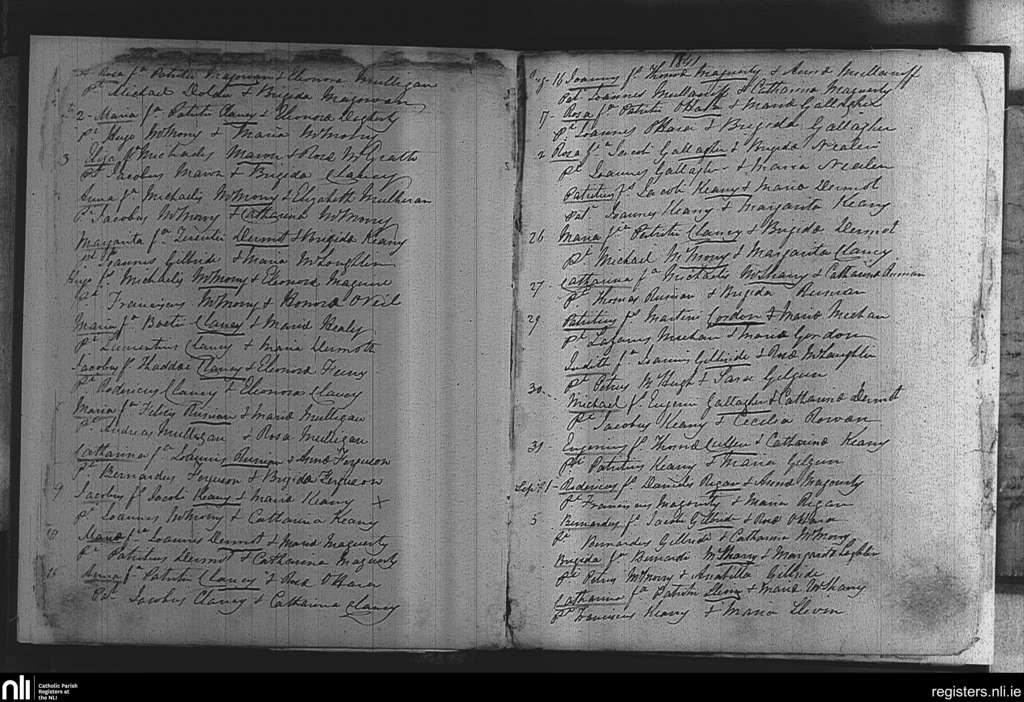 Rosa fa Patritii Magowan & Eleonora Mulligan
Pt Michael Dolan & Brigida Magowan
2 - Maria fa Patritii Clancy & Eleonora Dogherty
pt Hugo McMorry & Maria McMorry
3 Eliza fa Michaelis Mavin & Rosa McGrath
Pt Jacobus Mavin & Brigida Clancy
Anna fa Michaelis McMorry & Elizabeth Mulheran
Pt Jacobus McMorry & Catharina McMorry
Margarita fa Terentii Dermot & Brigida Keany
pt Joannis Gilbride & Maria McLoughlin
Hugo fs Michaelis McMorry & Eleonora Maguire
Pt Franciscus McMorry & Honora O'Neil
Maria fa Boetii Clancy & Maria Healy
pt Laurentius Clancy & Maria Dermoth
Jacobus fs Thaddae Clancy & Eleonora Feeny
Pt Rodericus Clancy & Eleonora Clancy
Maria fa Felicis Rusian & Maria Mulligan
Pt Andreas Mulligan & Rosa Mulligan
Catharina fa Joannis Rusian & Anna Ferguson
Pt Bernardus Ferguson & Brigida Ferguson
9 Jacobus fs Jacobi Keany & Maria Keany X
Pt Joannes McMorry & Catharina Keany
10 Maria fa Joannis Dermot & Maria Maguerty
Pt Patritius Dermot & Catharina Maguerty
15 Anna fa Patritii Clancy & Rosa O'Hara
Pat Jacobus Clancy & Catharina Clancy
1841
Aug 16 Joannes fs Thoma Maguerty & Anna Mullaniff
Pat Joannes Mullaniff & Catharina Maguerty
17 - Rosa fa Patritii O'Hara & Maria Gallagher
Pt Joannes O'Hara & Brigida Gallagher
2 Rosa fa Jacobi Gallagher & Brigida Nealin
Pt Joannes Gallagher & Maria Nealin
Patritius fs Jacobi Keany & Maria Dermot
Pat Joannes Keany & Margarita Keany
26 Maria fa Patritii Clancy & Brigida Dermot
Pt Michael McMorry & Margarita Clancy
27 Catharina fa Michaelis McSharry & Catharina Rusian
Pt Thomas Rusian & Brigida Rusian
29 Patritius fs Martini Gordon & Maria Meehan
Pt Lazarus Meehan & Maria Gordon
Judita fa Joannis Gilbride & Rosa McLaughlin
Pt Petrus McHugh & Sara Gilgun
30 Michael fs Eugenii Gallagher & Catharina Dermot
Pt Jacobus Keany & Cecilia Rowan
31 fs Thoma Cullen & Catharina Keany
Pt Patritius Keany & Maria Gilgun
Sept 1 - Rodericus fs Danielis Regan & Anna Magourty
Pt Franciscus Magourty & Maria Regan
5 Bernardus fs Jacobi Gilbride & Rosa O'Hara
Pt Bernardus Gilbride & Catharina McMorry
Brigida fa Bernardi McSharry & Margarita Loghlin
Pt Petrus McMorry & Anabella Gilbride
Catharina fa Patritii Slevin & Maria McSharry
Pt Franciscus Keany & Maria Slevin
nli
Catholic Parish
Registers at
the NLI
registers.nli.ie